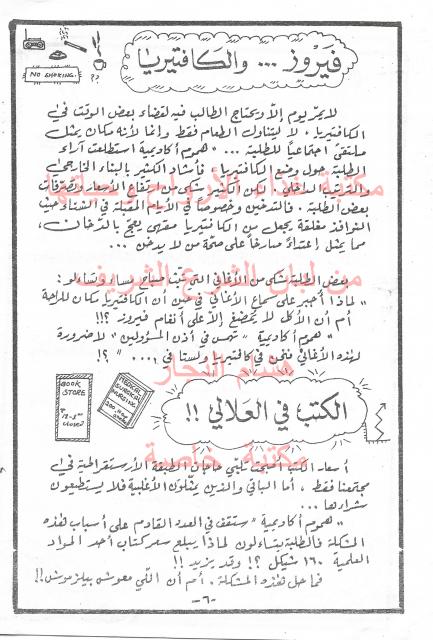 فَيروز ... والكافتيريا
NO SMOKING.
??
لا يمرّ يوم إلّا ويحتاج الطالب فيه لقضاء بعض الوقت في
الكافتيريا، لا ليتناول الطعام فقط وإنما لأنه مكان يمثل
ملتقىً اجتماعياً للطلبة ... "هموم أكاديمية" استطلعت آراء
الطلبة حول وضع الكافتيريا، فأشاد الكثير بالبناء الخارجي
والترتيب الداخلي، لكن الكثير شكى من ارتفاع الأسعار وتصرفات
بعض الطلبة. فالتدخين وخصوصاً في الأيام المقبلة في الشتاء حيث
النوافذ مغلقة يجعل من الكافتيريا مقهى يعجّ بالدخان،
مما يمثل إعتداءً صارخاً على صحّة من لا يدخن ...
بعض الطلبة شكى من الأغاني التي تبث صباح مساء وتساءلوا:
"لماذا أُجبر على سماع الأغاني في حين أن الكافتيريا مكان للراحة
أم أن الأكل لا يُهضم إلّا على أنغام فيروز ؟!!"
"هموم أكاديمية" تهمس في أذن المسؤولين "لا ضرورة
لهذه الأغاني فنحن في كافتيريا ولسنا في ...." ؟!
BOOK
STORE
12-1
closed
MEDICAL
SURGICAL
NURSING
الكتب في العلالي !!
أسعار الكتب أصبحت تلبّي حاجات الطبقة الأرستقراطية في
مجتمعنا فقط، أما الباقي والذين يمثّلون الأغلبية فلا يستطيعون
شراءها...
"هموم أكاديمية" ستقف في العدد القادم على أسباب هذه
المشكلة فالطلبة يتساءلون لماذا يبلغ سعر كتاب أحد المواد
العلمية ١٦٠ شيكل ؟! وقد يزيد !!
فما حل هذه المشكلة. أم أن اللّي معوش بيلزموش!!
-٦-
مكتبة
من لبان الشرع الشريف
بسام النجار
مكتبة خاصة